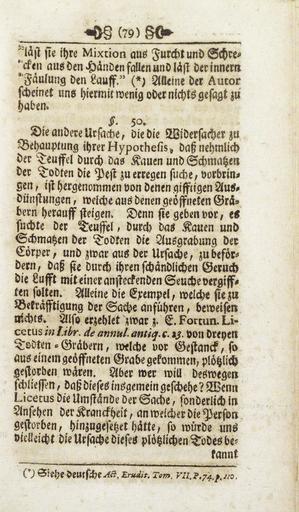 (79)
"läst sie ihre Mixtion aus Furcht und Schre-
"cken aus den Händen fallen und läst der innern
"Fäulung den Lauff." (*) Alleine der Autor
scheinet uns hiermit wenig oder nichts gesagt zu
haben.
§. 50.
Die andere Ursache, die die Widersacher zu
Behauptung ihrer Hypothesis, daß nehmlich
der Teuffel durch das Kauen und Schmatzen
der Todten die Pest zu erregen suche, vorbrin-
gen, ist hergenommen von denen gifftigen Aus-
dünstungen, welche aus denen geöffneten Grä-
bern herauff steigen. Denn sie geben vor, es
suchte der Teuffel, durch das Kauen und
Schmatzen der Todten die Ausgrabung der
Cörper, und zwar aus der Ursache, zu beför-
dern, daß sie durch ihren schändlichen Geruch
die Lufft mit einer ansteckenden Seuche vergiff-
ten solten. Alleine die Exempel, welche sie zu
Bekräfftigung der Sache anführen, beweisen
nichts. Also erzehlet zwar z. E. Fortun. Li-
cetus in Libr. de annul. antiq. c. 23. von dreyen
Todten-Gräbern, welche vor Gestanck, so
aus einem geöffneten Grabe gekommen, plötzlich
gestorben wären. Aber wer will deswegen
schliessen, daß dieses insgemein geschehe? Wenn
Licetus die Umstände der Sache, sonderlich in
Ansehen der Kranckheit, an welcher die Person
gestorben, hinzugesetzt hätte, so würde uns
vielleicht die Ursache dieses plötzlichen Todes be-
kannt
(*) Siehe deutsche Act. Erudit. Tom. VII. P. 74. p. 110.